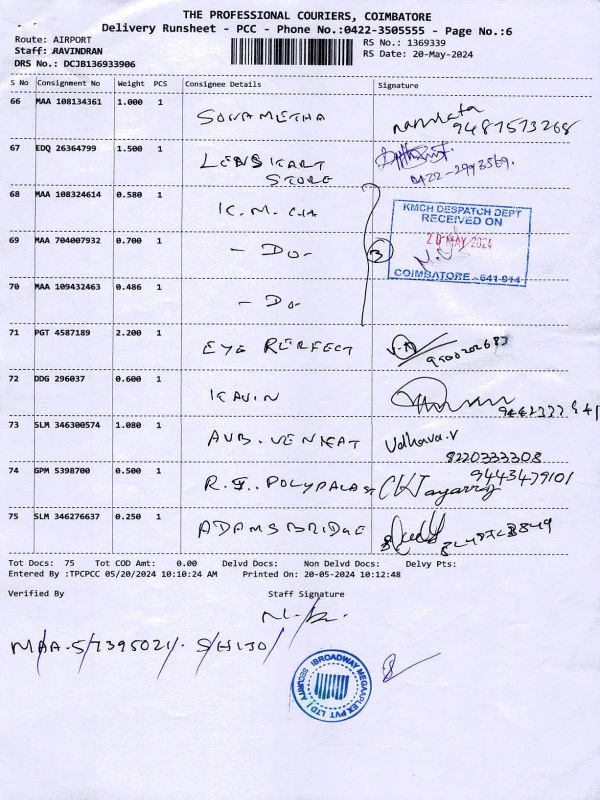 THE PROFESSIONAL COURIERS, COIMBATORE
Delivery Runsheet - PCC - Phone No.:0422-3505555 - Page No.:6
Route: AIRPORT
Staff: RAVINDRAN
DRS No.: DCJB136933906
RS No.: 1369339
RS Date: 20-May-2024
S No Consignment No Weight PCS Consignee Details Signature
66 MAA 108134361 1.000 1 SONAMETHA namrata
67 EDQ 26364799 1.500 1 LENSKART
STORE 0422-2993569.
68 MAA 108324614 0.580 1 K.M.CH
69 MAA 704007932 0.700 1 - DO-
70 MAA 109432463 0.486 1 - DO-
KMCH DESPATCH DEPT
RECEIVED ON
20 MAY 2024
COIMBATORE - 641 014
71 PGT 4587189 2.200 1 EYE PERFECT
72 DDG 296037 0.600 1 KAVIN
73 SLM 346300574 1.080 1 AUB. VENKAT Udhava.V
8220333308
74 GPM 5398700 0.500 1 R.J. POLYPALAST 9443479101
75 SLM 346276637 0.250 1 ADAMSBRIDGE
Tot Docs: 75 Tot COD Amt: 0.00 Delvd Docs: Non Delvd Docs: Delvy Pts:
Entered By :TPCPCC 05/20/2024 10:10:24 AM Printed On: 20-05-2024 10:12:48
Verified By Staff Signature
MAA-57395021 SHIJO
BROADWAY MEGAAPLEX PVT LTD
SECURITY